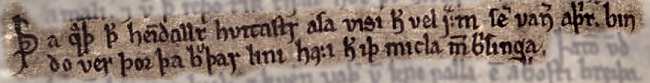 Þa q̄þ þ̄ heīdallr hvitastr asa visi h̄ vel fͣm sē van̄ aþr̄. bin
do ver þor þa bͮþar lini hafi h̄ iþ micla m̄ bͥsinga.